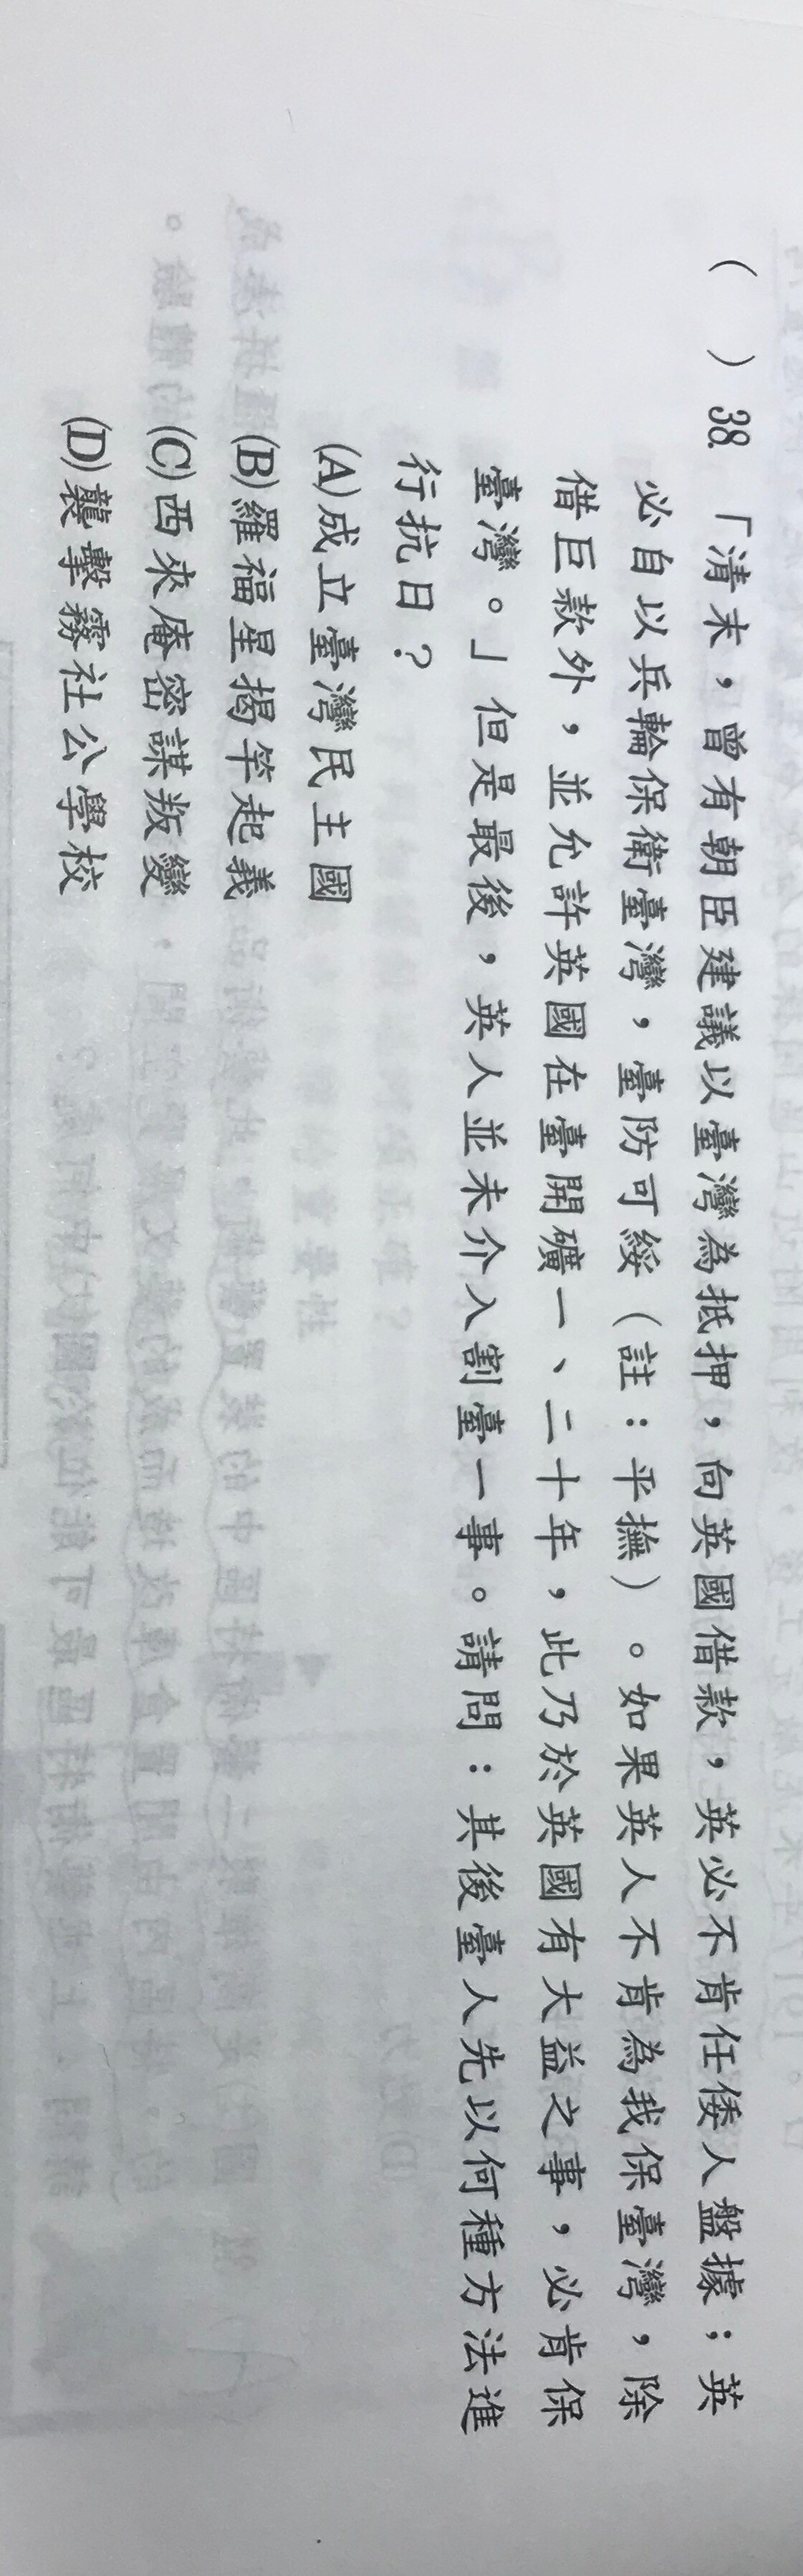 (　)38.「清末，曾有朝臣建議以臺灣為抵押，向英國借款，英必不肯任倭人盤據；英
必自以兵輪保衛臺灣，臺防可綏（註：平撫）。如果英人不肯為我保臺灣，除
借巨款外，並允許英國在臺開礦一、二十年，此乃於英國有大益之事，必肯保
臺灣。」但是最後，英人並未介入割臺一事。請問：其後臺人先以何種方法進
行抗日？
(A)成立臺灣民主國
(B)羅福星揭竿起義
(C)西來庵密謀叛變
(D)襲擊霧社公學校